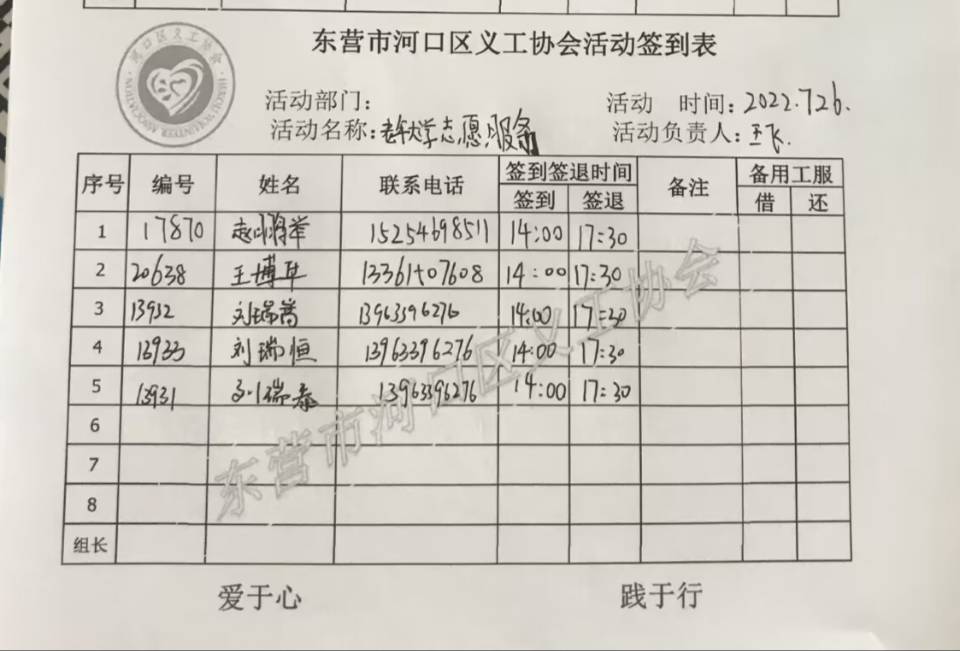 东营市河口区义工协会活动签到表
河口区义工协会
HEKOU VOLUNTEER ASSOCIATION
活动部门：
活动 时间：2022.7.26.
活动名称：老年大学志愿服务
活动负责人：王飞.
序号 编号 姓名 联系电话 签到签退时间 备注 备用工服
签到 签退 借 还
1 17870 赵 举 15254698511 14:00 17:30
2 20638 王博 14:00 17:30
3 13932 刘瑞嵩 13963396276 14:00 17:30
4 13933 刘瑞恒 13963396276 14:00 17:30
5 13931 刘瑞泰 13963396276 14:00 17:30
6
7
8
组长
东营市河口区义工协会
爱于心 践于行